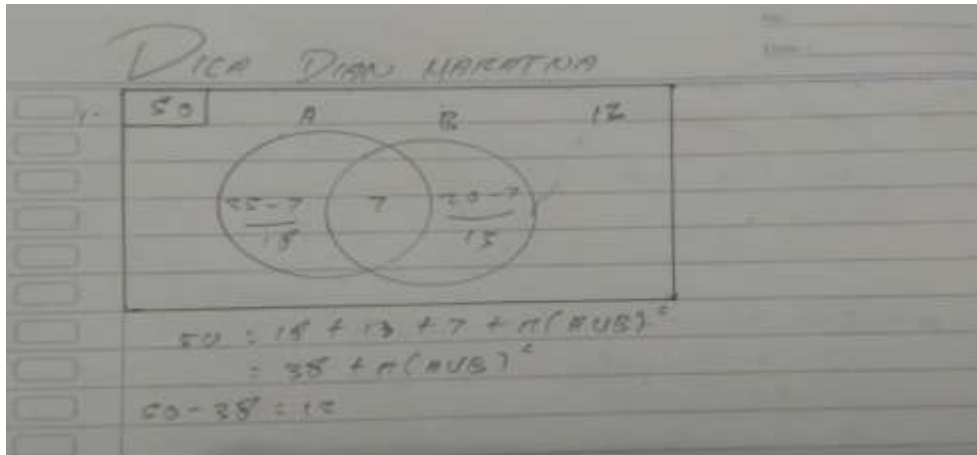 DICA DIAN MARATINA
1. 50 A B 12
25-7 7 20-7
18 13
50 = 18 + 13 + 7 + n(AUB)ᶜ
= 38 + n(AUB)ᶜ
50 - 38 = 12